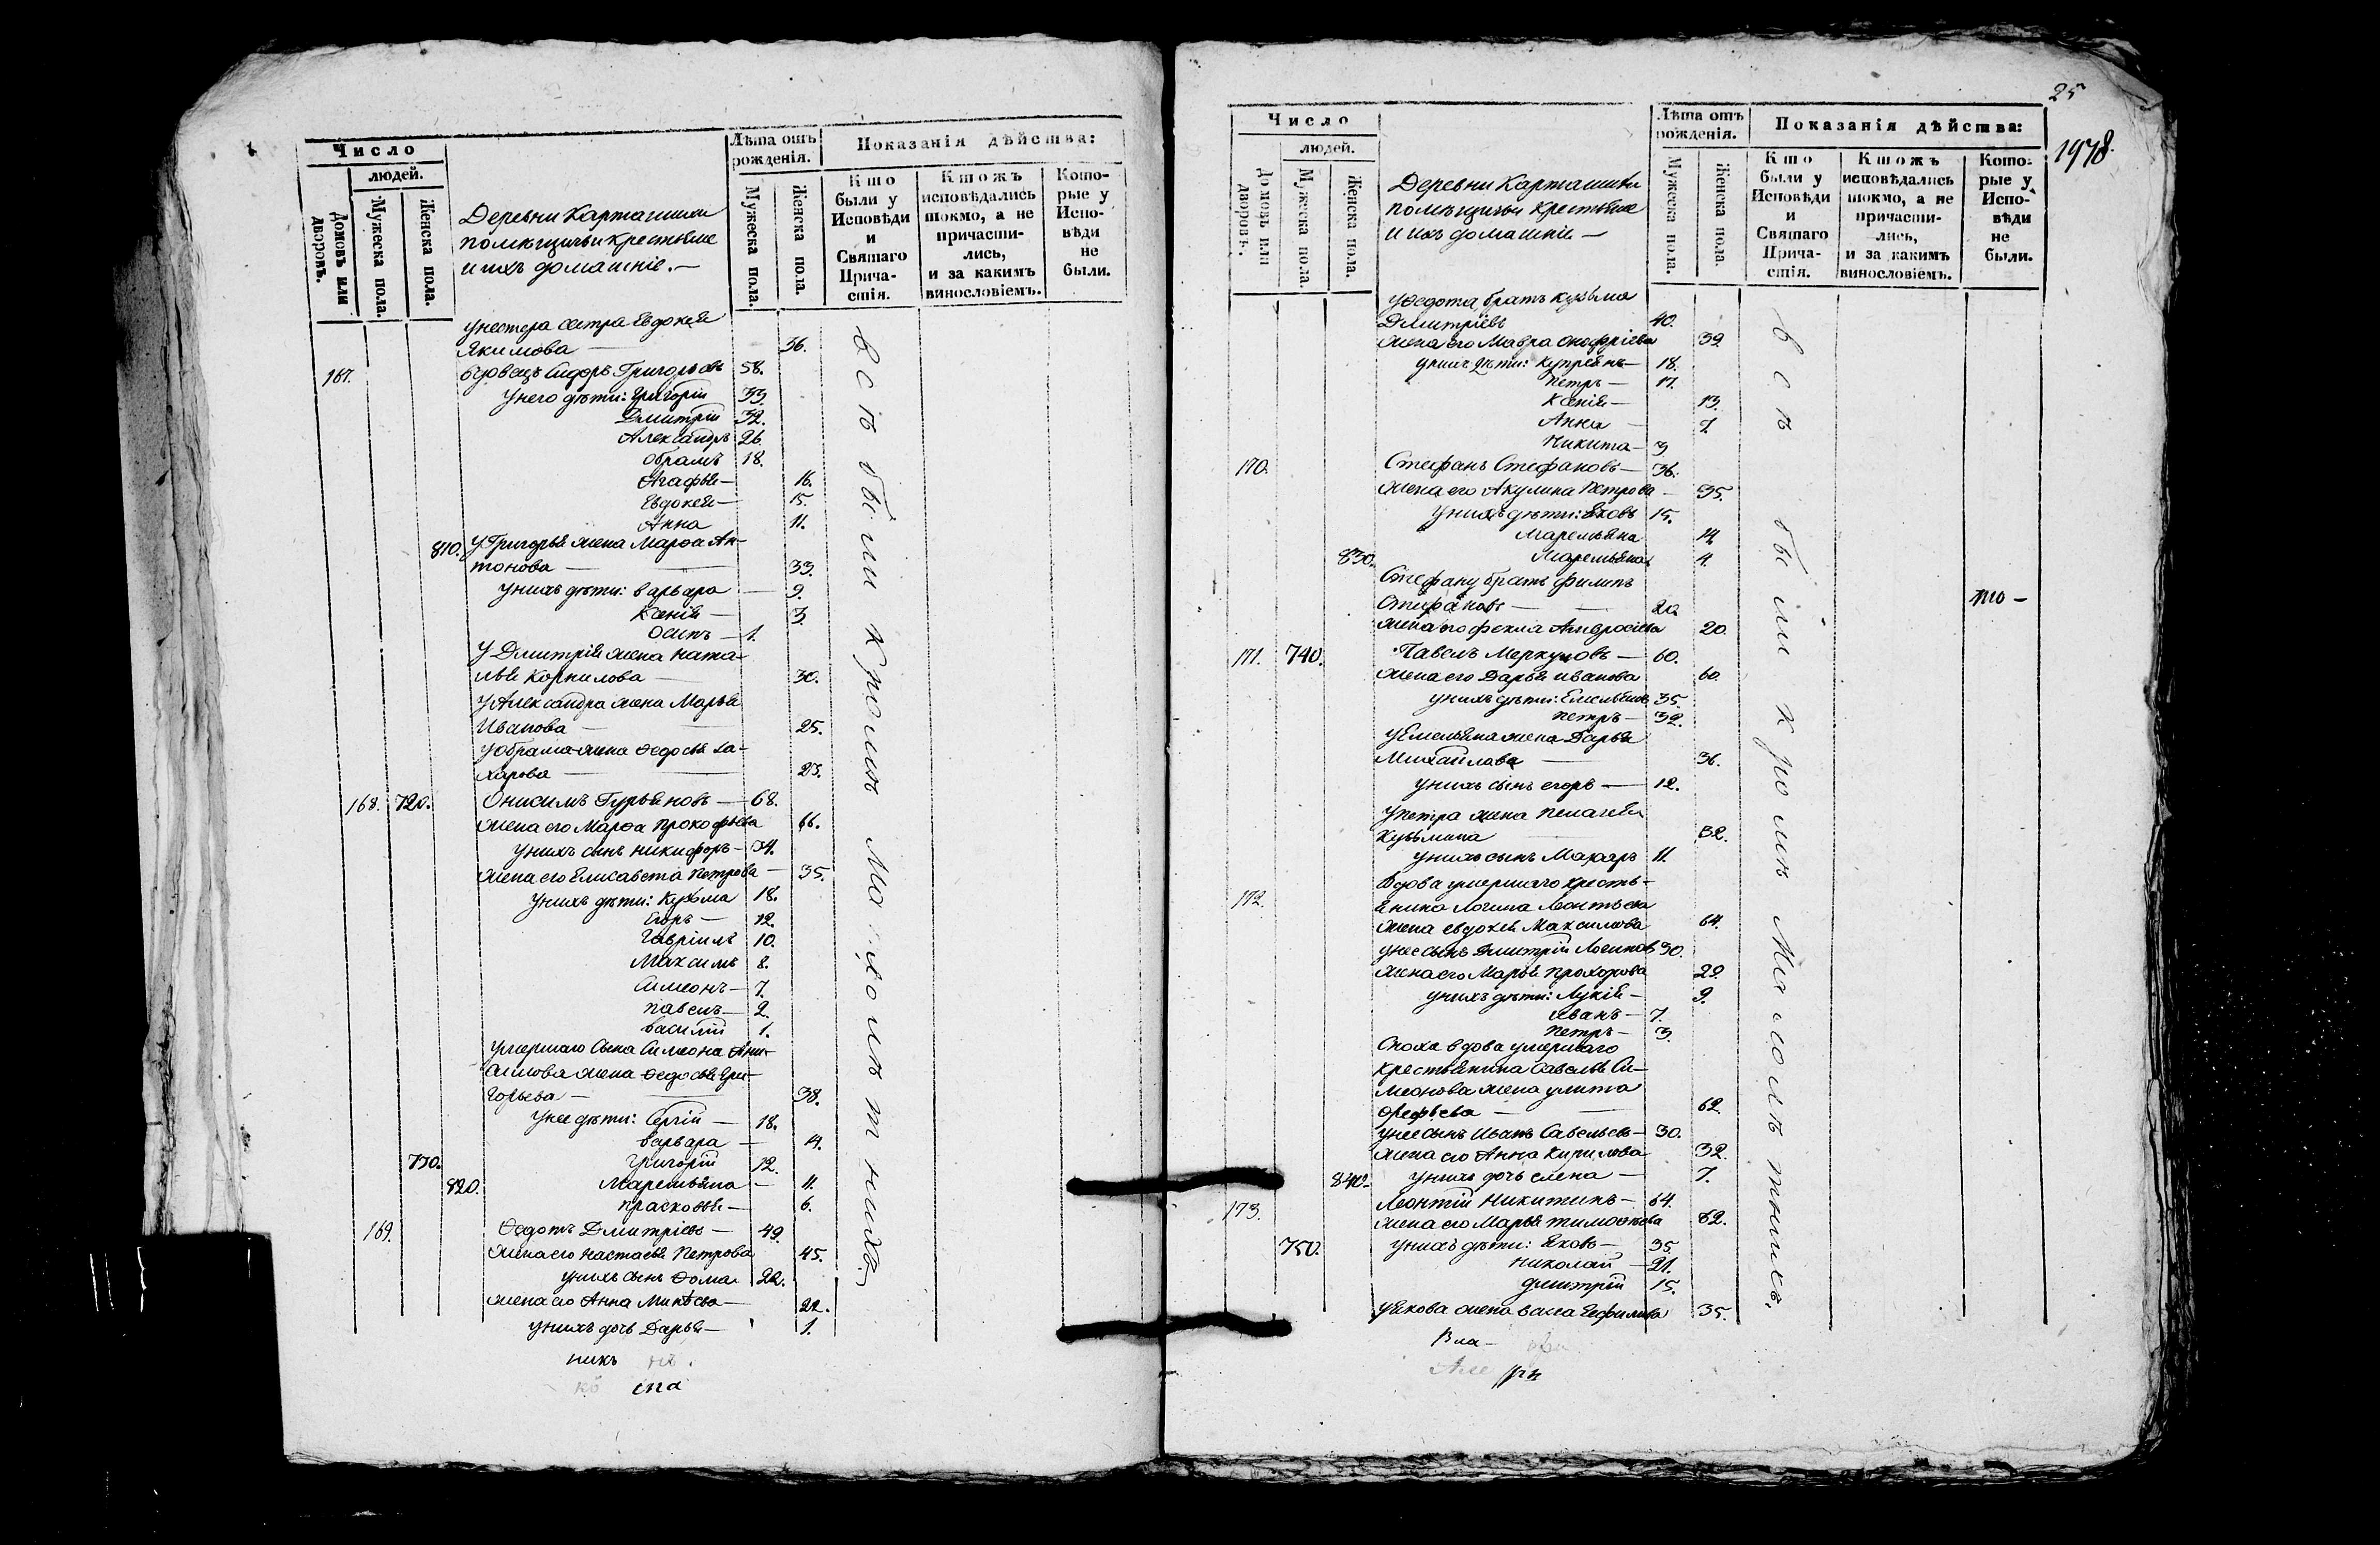 Число
людей.
Домовъ или дворовъ.
Мужеска пола.
Женска пола.
Деревни Карташики
помѣщичьи крестьяне
и ихъ домашніе. —
Лѣта отъ рожденія.
Мужеска пола.
Женска пола.
Показанія дѣйства:
Кто были у Исповѣди и Святаго Прича-стія.
Ктожъ исповѣдались токмо, а не причасти-лись, и за какимъ винословіемъ.
Кото-рые у Испо-вѣди не были.
У нестера сестра Евдокея
Якимова — 36.
167. вдовецъ Сидоръ Григорьевъ 58.
У него дѣти: Григорій 33.
Дмитрій 32.
Александръ 26.
Обрамъ 18.
Агафья — 16.
Евдокея — 15.
Анна 11.
810. У Григорья жена Марѳа Ан-
тонова — 33.
У нихъ дѣти: варвара — 9.
Ксенія — 3.
Осипъ — 1.
У Дмитрія жена ната-
лья Корнилова — 30.
У Александра жена Марья
Иванова — 25.
У Обрама жена Ѳедосья За-
харова — 23.
168. 720. Онисимъ Гурьяновъ — 68.
жена его Марѳа Прокофьева 66.
У нихъ сынъ никифоръ — 34.
жена его Елисавета Петрова — 35.
У нихъ дѣти: Кузьма 18.
Егоръ — 12.
Гавріилъ 10.
Максимъ 8.
Симеонъ — 7.
павелъ — 2.
василій 1.
умершаго сына Симеона Они-
симова жена Ѳедосья Гри-
горьева — 38.
У нее дѣти: Сергій — 18.
варвара — 14.
730. Григорій 12.
820. Маремьяна — 11.
прасковья — 6.
169. Ѳедотъ Дмитріевъ — 49.
жена его настасья Петрова 45.
У нихъ сынъ Ѳома 22.
жена его Анна Минѣева — 22.
У нихъ дочь Дарья — 1.
никъ
сна
всѣ были кромѣ малолѣтнихъ
25
1978.
Число
людей.
Домовъ или дворовъ.
Мужеска пола.
Женска пола.
Деревни Карташики
помѣщичьи крестьяне
и ихъ домашніе —
Лѣта отъ рожденія.
Мужеска пола.
Женска пола.
Показанія дѣйства:
Кто были у Исповѣди и Святаго Прича-стія.
Ктожъ исповѣдались токмо, а не причасти-лись, и за какимъ винословіемъ.
Кото-рые у Испо-вѣди не были.
У Ѳедота братъ кузьма
Дмитріевъ 40.
жена его Мавра Онофріева 39.
У нихъ дѣти: Купріянъ — 18.
Петръ — 17.
Ксенія — 13.
Анна — 7.
Никита — 3
170. Стефанъ Стефановъ — 36.
жена его Акулина Петрова — 35.
У нихъ дѣти: Яковъ 15.
Маремьяна 14
830. Маремьяна 4.
Стефану братъ Филипъ
Стефановъ — 20.
жена его фекла Амвросіева 20.
171. 740. Павелъ Меркуловъ — 60.
жена его Дарья иванова 60.
У нихъ дѣти: Емельянъ 35.
петръ — 32.
У Емельяна жена Дарья
Михайлова — 36.
У нихъ сынъ егоръ — 12.
У петра жена пелагея
Кузьмина 32.
У нихъ сынъ Макаръ 11.
172. Вдова умершаго кресть-
янина логина леонтьева
жена евдокея Максимова 64.
У нее сынъ Дмитрій Логиновъ 30.
жена его Марья прохорова 29.
У нихъ дѣти: Лукія — 9.
Иванъ — 7.
Петръ — 3.
Сноха вдова умершаго
крестьянина Савелья Си-
меонова жена улита
Орефьева — 62.
У нее сынъ Иванъ Савельевъ — 30.
жена его Анна Кирилова 32.
840. У нихъ дочь елена — 7.
173. Леонтій Никитинъ — 64.
жена его Марья тимоѳѣева 62.
750. У нихъ дѣти: Яковъ — 35.
николай — 21.
димитрій 15.
У Якова жена васса Ефимова 35.
Вла-
всѣ были кромѣ малолѣтнихъ.